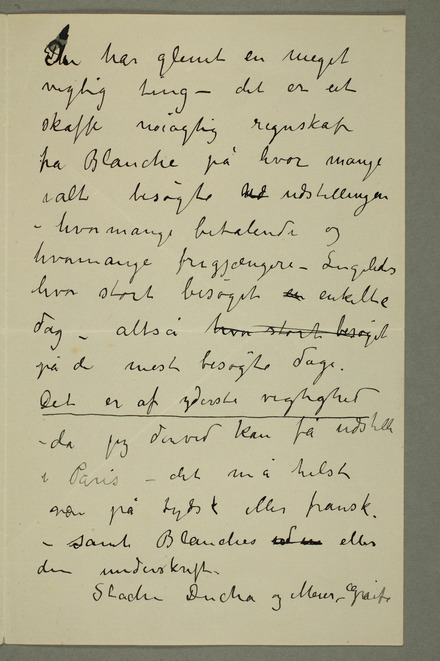 Du har glemt en meget
vigtig ting – det er at
skaffe nøiagtig regnskab
fra Blanche på hvor mange
ialt besøgte udstillingen
– hvormange betalende og
hvormange frigjængere –
hvor stort besøget enkelte
dag – altså hvor stort besøget
på de mest besøgte dage.
Det er af yderste vigtighed
– da jeg derved kan få udstille
i Paris – det må helst
være på tydsk eller fransk.
– samt Blanches eller
din underskrift.
Ducha og Meier-Græfe